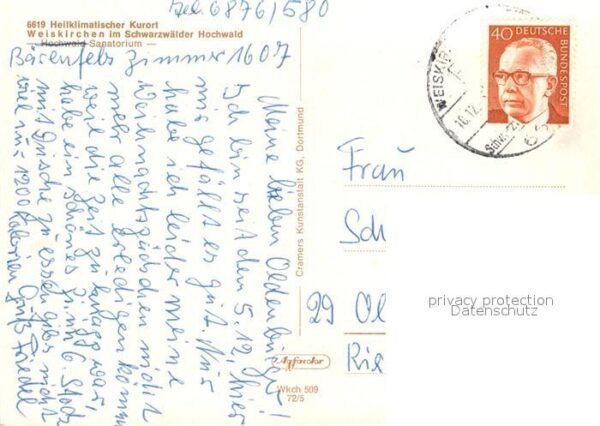 Tel. 06876/580
6619 Heilklimatischer Kurort
Weiskirchen im Schwarzwälder Hochwald
— Hochwald Sanatorium —
Bärenfels Zimmer 1607
Meine lieben Oldenburger!
Ich bin seit den 5.12. hier
mir gefällt es gut. Nur
habe ich leider meine
Weihnachtspäckchen nicht
mehr alle erledigen können
weil die Zeit zu knapp war
habe ein schönes Zimm 6. Stock
mit Dusche zu essen gibs nicht
viel nur 1200 Kalorien Gruß Friedel
Cramers Kunstanstalt KG, Dortmund
Agfacolor
Wkch 509
72/5
40 DEUTSCHE
BUNDESPOST
WEISKIR
16.12.
Schw
Frau
Sch
29 Ol
Rie
privacy protection
Datenschutz